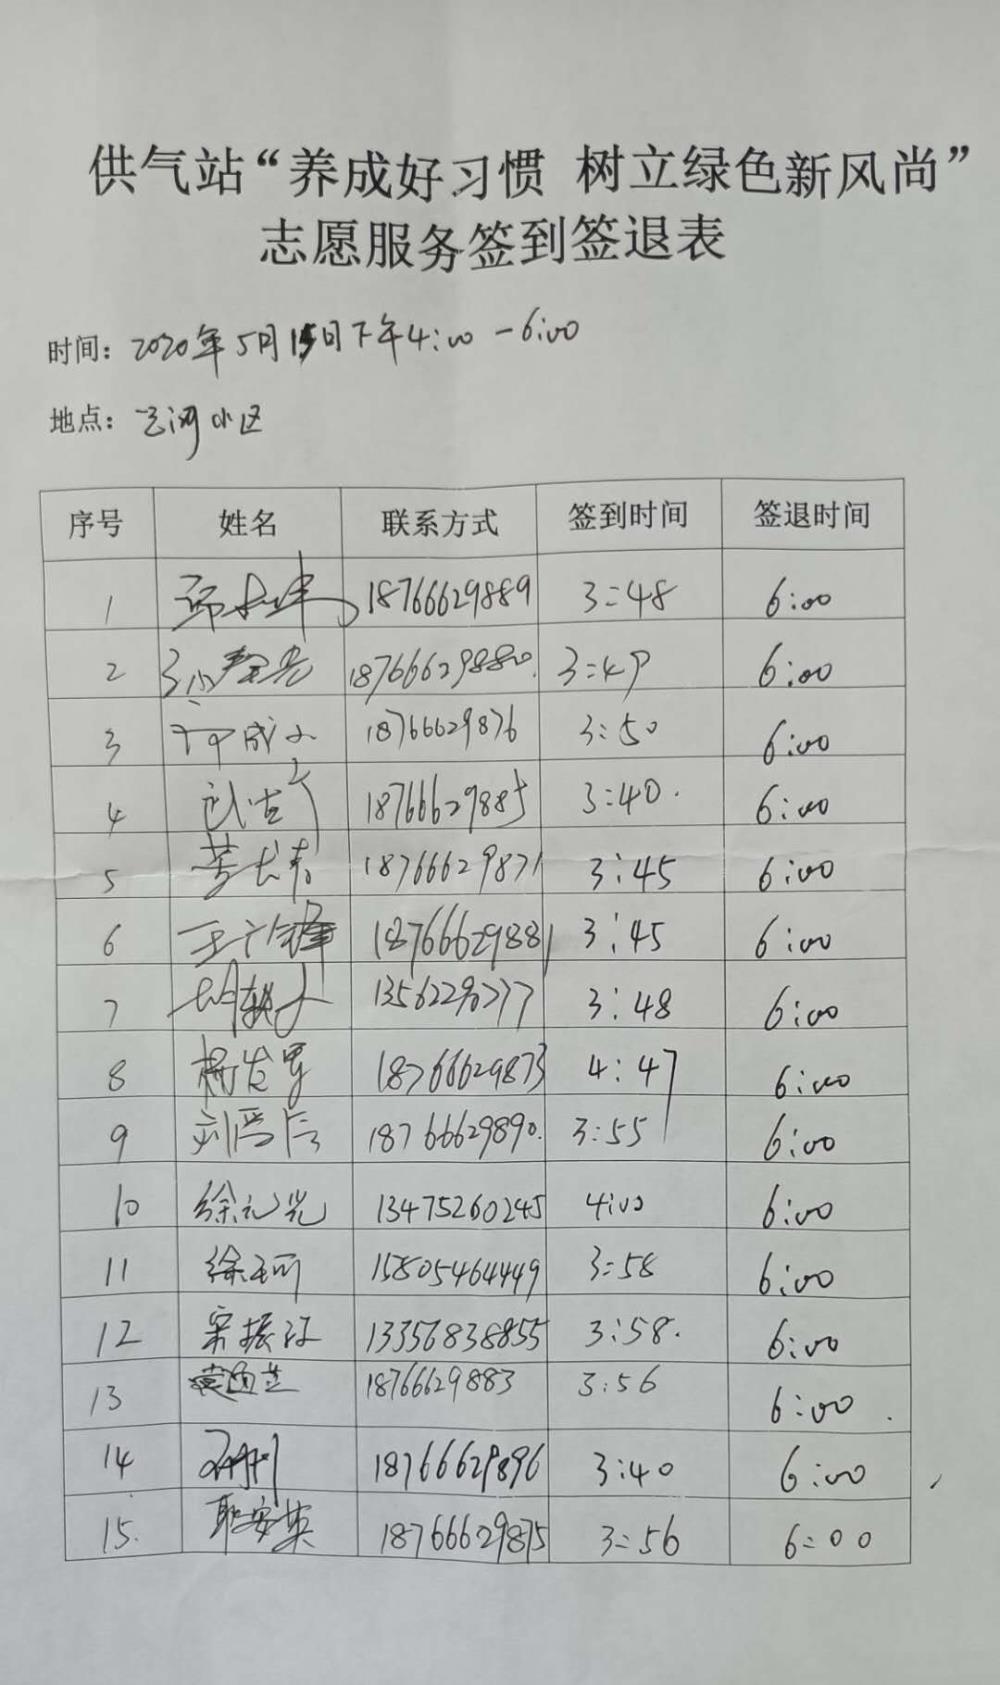 供气站“养成好习惯 树立绿色新风尚”
志愿服务签到签退表
时间：2020年5月15日下午4:00-6:00
地点： 小区
序号 姓名 联系方式 签到时间 签退时间
1 18766629889 3:48 6:00
2 18766629880. 3:49 6:00
3 18766629876 3:50 6:00
4 18766629885 3:40. 6:00
5 18766629871 3:45 6:00
6 18766629881 3:45 6:00
7 3:48 6:00
8 杨发军 18766629873 4:47 6:00
9 18766629890. 3:55 6:00
10 徐元光 13475260245 4:00 6:00
11 15805464449 3:58 6:00
12 宋振江 13356838855 3:58. 6:00
13 18766629883 3:56 6:00.
14 18766629896 3:40 6:00
15. 耿安英 18766629875 3:56 6:00